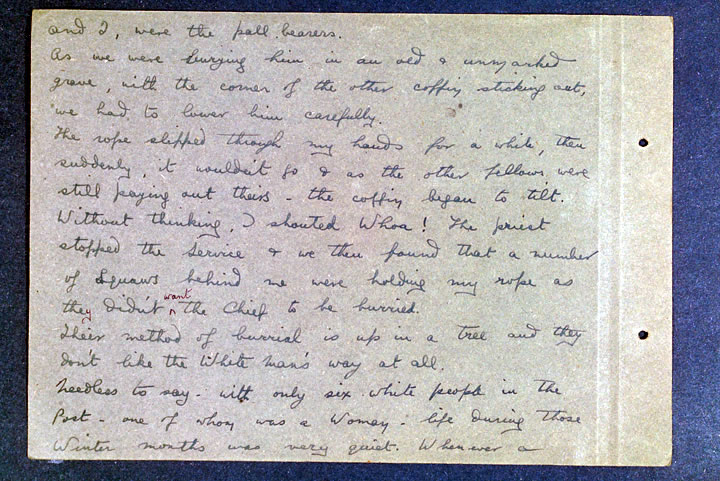 and I, were the pall bearers.
As we were burying him in an old & unmarked
grave, with the corner of the other coffin sticking out,
we had to lower him carefully.
The rope slipped through my hands for a while, then
suddenly, it wouldn't go & as the other fellows were
still paying out theirs - the coffin began to tilt.
Without thinking, I shouted Whoa! The priest
stopped the Service & we then found that a number
of Squaws behind me were holding my rope as
they didn't want the Chief to be burried.
Their method of burrial is up in a tree and they
don't like the White man's way at all.
Needless to say - with only six white people in the
Post - one of whom was a Woman - life during those
Winter months was very quiet. Whenever a